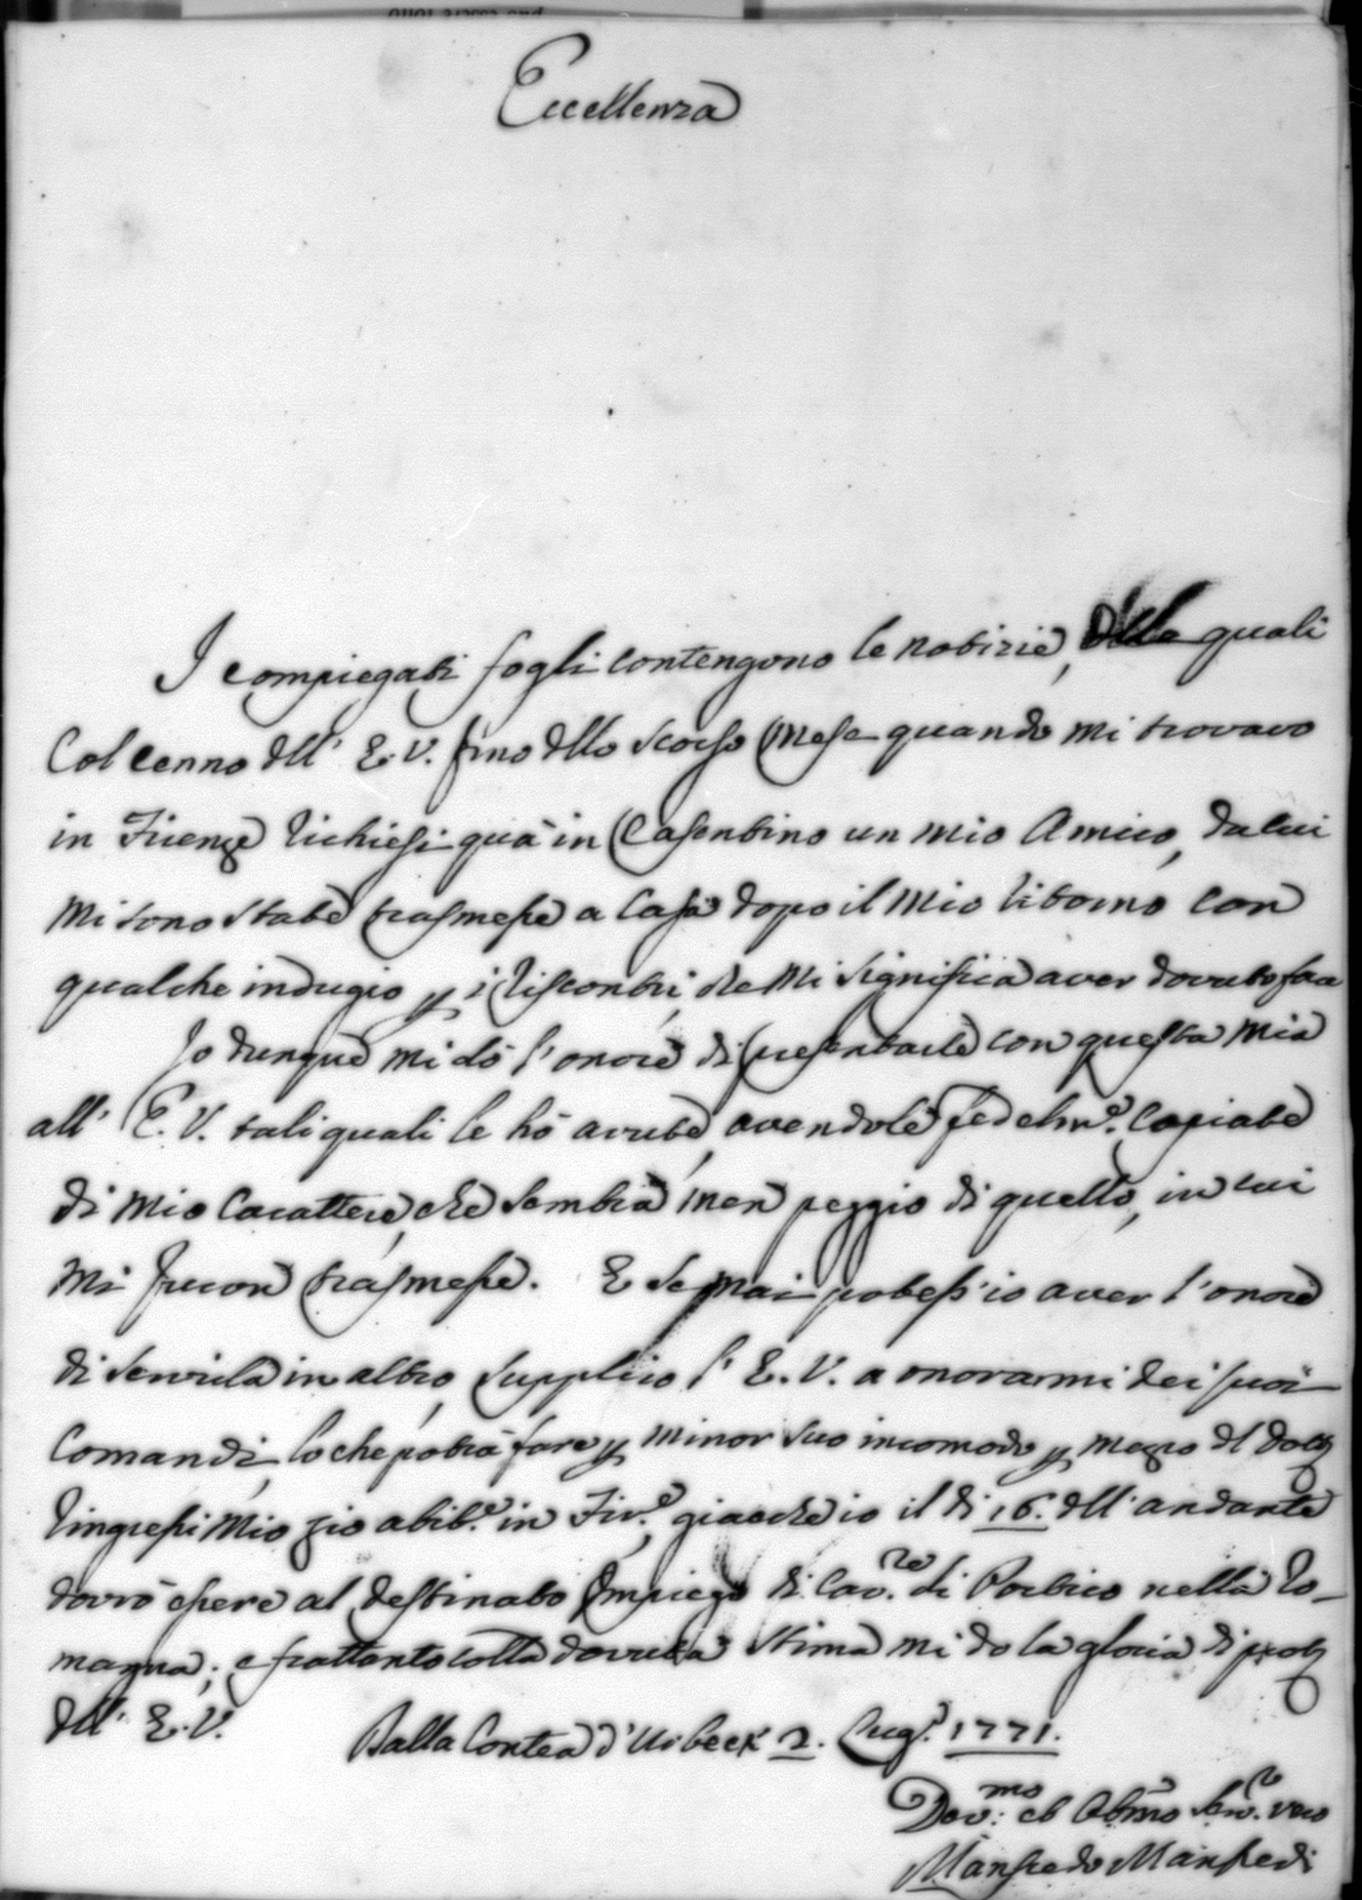 Eccellenza
I compiegati fogli contengono le notizie, delle quali
Col cenno dell' E. V. fino dello scorso Mese quando mi trovavo
in Firenze richiesi quà in Casentino un mio Amico, da cui
mi sono state trasmesse a Casa dopo il mio ritorno con
qualche indugio p i riscontri, che mi significa aver dovuto fare
Io dunque mi dò l'onore di presentarle con questa mia
all' E. V. tali quali le hò avute, avendole fedelm.e Copiate
di mio Carattere, che sembra men peggio di quello, in cui
mi furon trasmesse. E se mai potess'io aver l'onore
di servirla in altro, supplico l' E. V. a onorarmi dei suoi
Comandi, lo che potrà fare p minor suo incomodo p mezzo del Dott
Ringressi mio zio abit.e in Fir.e, giacchè io il dì 16. dell' andante
dovrò essere al destinato Impiego di Cav.re di Portico nella Ro-
magna; e frattanto colla dovuta stima mi do la gloria di prot
dell' E. V.
Dalla Contea d'Urbeck 2. Lug.o 1771.
Dev.mo et Obmo Serv.re vero
Manfredo Manfredi